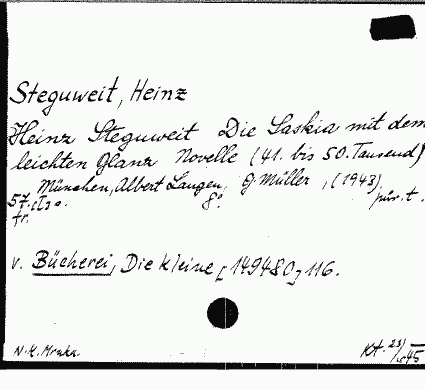 Steguweit, Heinz
Heinz Steguweit Die Saskia mit dem
leichten Glanz Novelle (41. bis 50. Tausend)
München, Albert Langen, G. Müller, (1943)
57. 8°. pův. t.
fr.
v. Bücherei, Die Kleine [149480] 116.
N. K. Mraka. Kt. 23/ 45